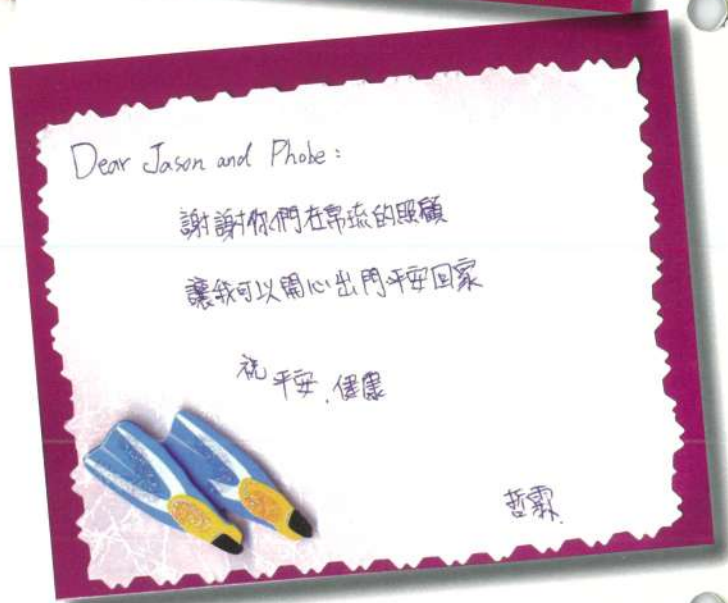 Dear Jason and Phobe:
謝謝你們在帛琉的照顧
讓我可以開心出門平安回家
祝 平安、健康
哲霖